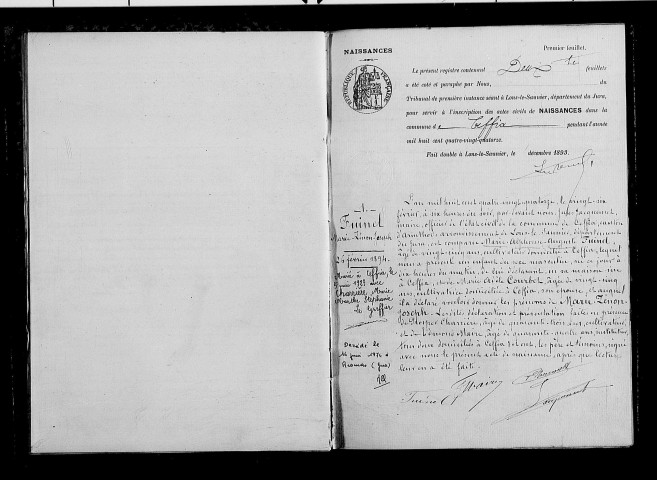 NAISSANCES
Premier feuillet.
RÉPUBLIQUE FRANÇAISE
Le présent registre contenant Deux feuillets
a été coté et paraphé par Nous, du
Tribunal de première instance séant à Lons-le-Saunier, département du Jura,
pour servir à l'inscription des actes civils de NAISSANCES dans la
commune de Ceffia pendant l'année
mil huit cent quatre-vingt-quatorze.
Fait double à Lons-le-Saunier, le décembre 1893.
1
Fuinel
Marie Zénon Joseph
26 février 1894.
Marié à Ceffia, le
1923 avec
Charrière Marie
Stéphanie
Décédé le
juin 1976 à
(Jura)
L'an mil huit cent quatre vingt quatorze, le vingt six
février, à six heures du soir, par devant nous, Jules Jacquemet,
maire, officier de l'état civil de la commune de Ceffia, canton
d'Arinthod, arrondissement de Lons-le-Saunier, département
du Jura, est comparu Marie August Fuinel,
âgé de vingt cinq ans, cultivateur domicilié à Ceffia, lequel
nous a présenté un enfant du sexe masculin, né ce jour à
dix heures du matin, de lui déclarant, en sa maison
à Ceffia, et de Marie Courbet, âgée de vingt cinq
ans, cultivatrice domiciliée à Ceffia, son épouse, et auquel
il a déclaré vouloir donner les prénoms de Marie Zénon
Joseph. Lesdites déclaration et présentation faites en présence
de Prosper Charrière, âgé de quarante trois ans, cultivateur,
et de Maire, âgé de quarante quatre ans,
tous deux domiciliés à Ceffia et ont, les père et témoins, signé
avec nous le présent acte de naissance, après que lecture
leur en a été faite.
Fuinel
Maire
Charrière
Jacquemet